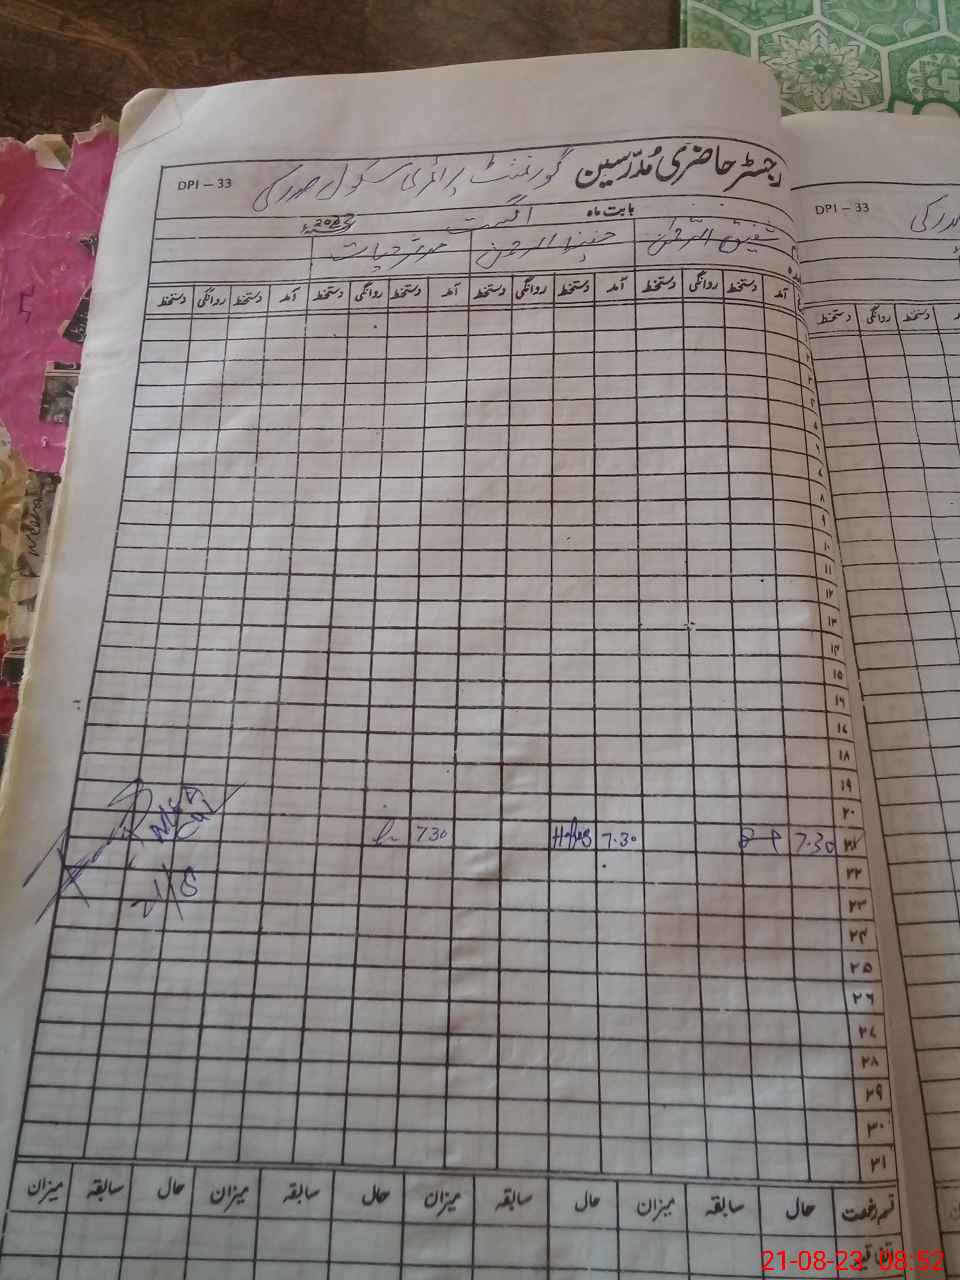 رجسٹر حاضری مُدرّسین گورنمنٹ پرائمری سکول
DPI – 33
بابت ماہ اگست 2023
شفیق الرحمٰن حفیظ الرحمن
آمد دستخط روانگی دستخط آمد دستخط روانگی دستخط آمد دستخط روانگی دستخط آمد دستخط روانگی دستخط
۱
۲
۳
۴
۵
۶
۷
۸
۹
۱۰
۱۱
۱۲
۱۳
۱۴
۱۵
۱۶
۱۷
۱۸
۱۹
۲۰
۲۱ 7.30 7.30 Hafeez 7.30
۲۲
21/8
۲۳
۲۴
۲۵
۲۶
۲۷
۲۸
۲۹
۳۰
۳۱
قسم رخصت حال سابقہ میزان حال سابقہ میزان حال سابقہ میزان حال سابقہ میزان
DPI – 33
دستخط روانگی دستخط
21-08-23 08:52